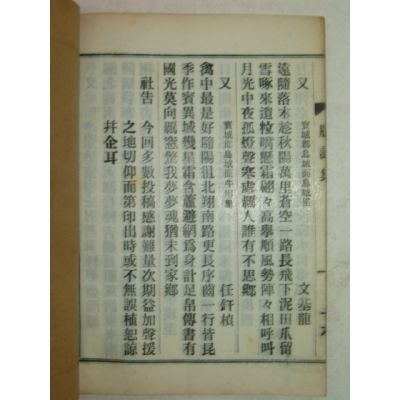 又 寶城郡鳥城面鳥城里 文基龍
遠隨落木趁秋陽萬里蒼空一路長飛下泥田爪留
雪啄來遺粒嘴懸霜翩々高擧順風勢陣々相呼叫
月光中夜孤燈聲寒處羈人誰有不思鄕
又 寶城郡鳥城面牛川里 任釬楨
禽中最是好隨陽徂北翔南路更長序齒一行皆昆
季作賓異域幾星霜含蘆避網爲身計足帛傳書有
國光莫向羈窓驚我夢夢魂猶未到家鄕
社告 今回多數投稿感謝難量次期益加聲援
之地切仰而第印出時或不無誤植恕諒
幷企耳